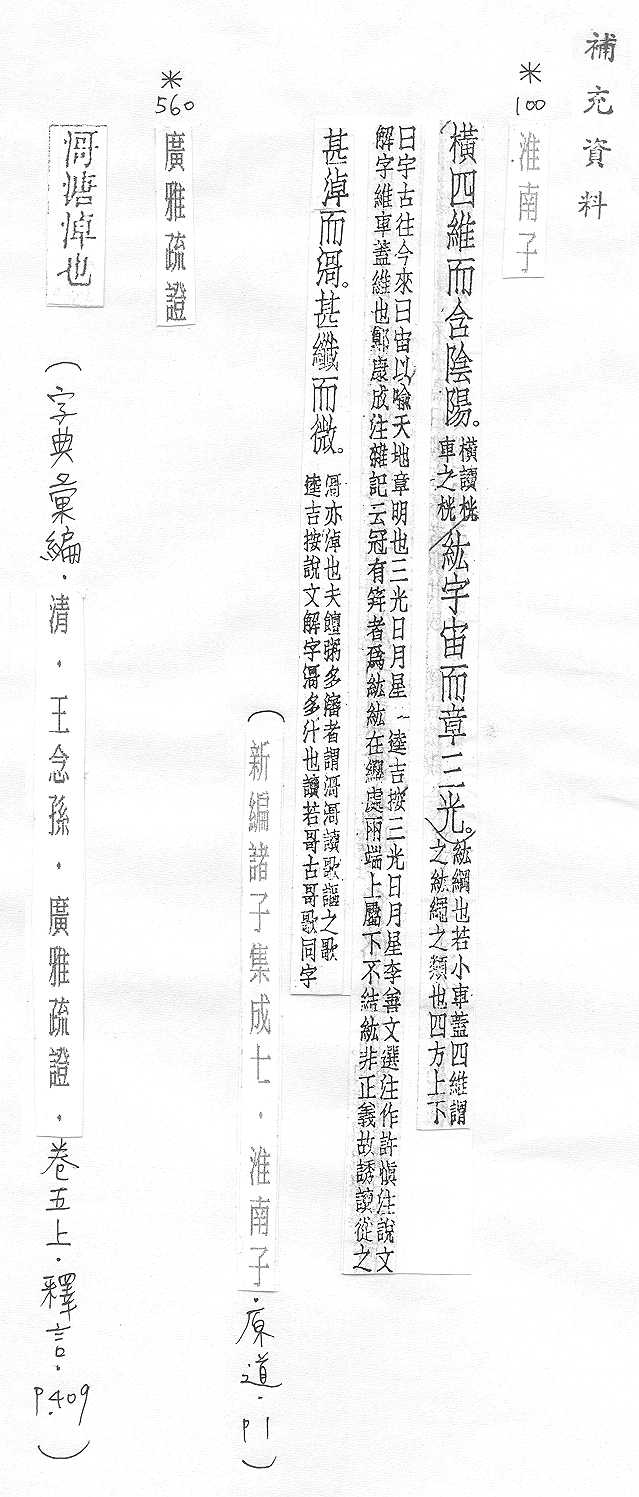 補充資料
*
100
淮南子
橫四維而含陰陽。橫讀桄車之桄紘宇宙而章三光。紘綱也若小車蓋四維謂之紘繩之類也四方上下
曰宇古往今來曰宙以喻天地章明也三光日月星 逵吉按三光日月星李善文選注作許慎注說文
解字維車蓋維也鄭康成注雜記云冠有笄者爲紘紘在纓處兩端上屬下不結紘非正義故誘讀從之
甚淖而滒。甚纖而微。滒亦淖也夫饘粥多瀋者謂滒滒讀歌謳之歌逵吉按說文解字滒多汁也讀若哥古哥歌同字
(新編諸子集成七.淮南子.原道.P1)
*
560
廣雅疏證
滒溏淖也
(字典彙編.清.王念孫.廣雅疏證.卷五上.釋言.P.409)